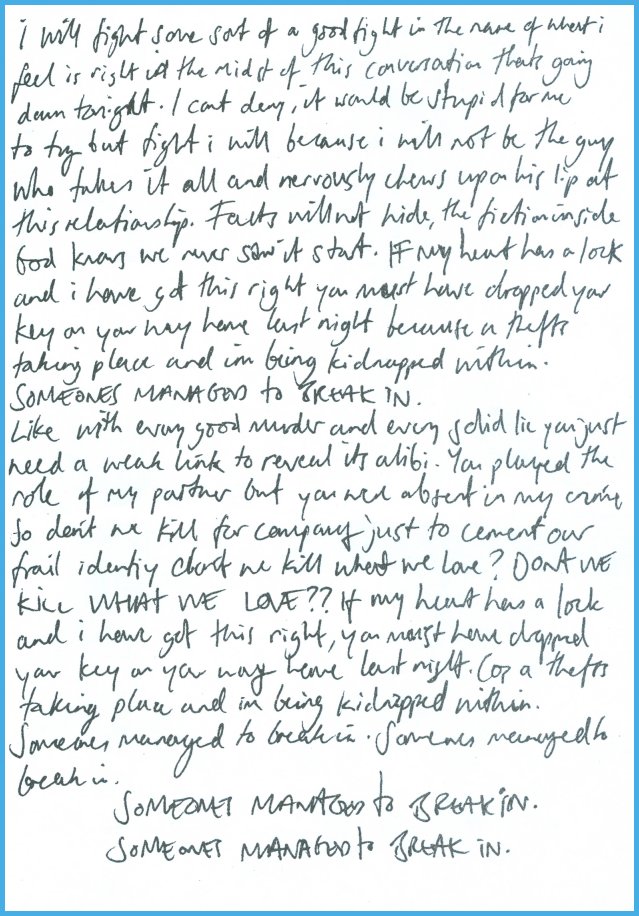 i will fight some sort of a good fight in the name of what i
feel is right in the midst of this conversation thats going
down tonight. I cant deny, it would be stupid for me
to try but fight i will because i will not be the guy
who takes it all and nervously chews upon his lip at
this relationship. Facts will not hide, the fiction inside
God knows we never saw it start. IF my heart has a lock
and i have got this right you must have dropped your
key on your way home last night because a thefts
taking place and im being kidnapped within.
SOMEONES MANAGED to BREAK IN.
Like with every good murder and every solid lie you just
need a weak link to reveal its alibi. You played the
role of my partner but you were absent in my crime
So don't we kill for company just to cement our
frail identity don't we kill what we love? DONT WE
KILL WHAT WE LOVE?? If my heart has a lock
and i have got this right, you must have dropped
your key on your way home last night. Coz a thefts
taking place and im being kidnapped within.
Someones managed to break in. Someones managed to
break in.
SOMEONES MANAGED to BREAK IN.
SOMEONES MANAGED to BREAK IN.